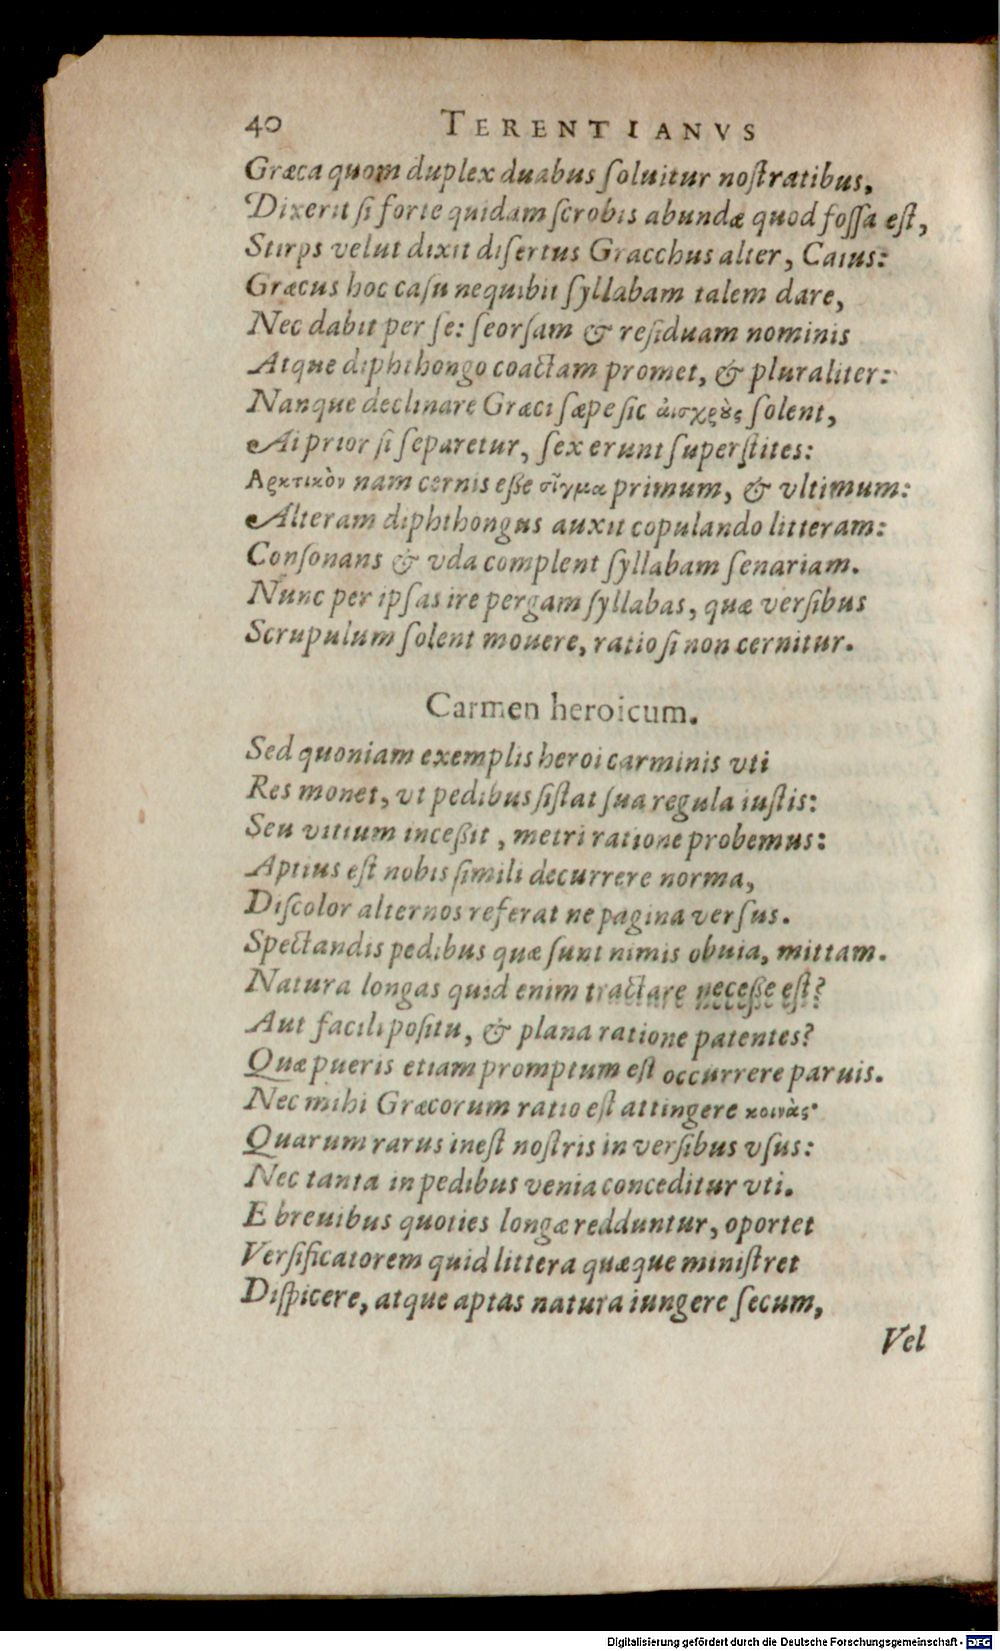 40 TERENTIANVS
Græca quom duplex duabus ſoluitur noſtratibus,
Dixerit ſi forte quidam ſcrobis abundæ quod foſſa eſt,
Stirps velut dixit diſertus Gracchus alter, Caius:
Græcus hoc caſu nequibit ſyllabam talem dare,
Nec dabit per ſe: ſeorſam & reſiduam nominis
Atque diphthongo coactam promet, & pluraliter:
Nanque declinare Græci ſæpe ſic αἰσχρȣ̀ς ſolent,
Ai prior ſi ſeparetur, ſex erunt ſuperſtites:
Αρκτικὸν nam cernis eße σῖγμα primum, & vltimum:
Alteram diphthongus auxit copulando litteram:
Conſonans & vda complent ſyllabam ſenariam.
Nunc per ipſas ire pergam ſyllabas, quæ verſibus
Scrupulum ſolent mouere, ratio ſi non cernitur.
Carmen heroicum.
Sed quoniam exemplis heroi carminis vti
Res monet, vt pedibus ſiſtat ſua regula iuſtis:
Seu vitium inceßit, metri ratione probemus:
Aptius eſt nobis ſimili decurrere norma,
Diſcolor alternos referat ne pagina verſus.
Spectandis pedibus quæ ſunt nimis obuia, mittam.
Natura longas quid enim tractare neceße eſt?
Aut facili poſitu, & plana ratione patentes?
Quæ pueris etiam promptum eſt occurrere paruis.
Nec mihi Græcorum ratio eſt attingere κοινὰς·
Quarum rarus ineſt noſtris in verſibus vſus:
Nec tanta in pedibus venia conceditur vti.
E breuibus quoties longæ redduntur, oportet
Verſificatorem quid littera quæque miniſtret
Diſpicere, atque aptas natura iungere ſecum,
Vel
Digitalisierung gefördert durch die Deutsche Forschungsgemeinschaft - DFG